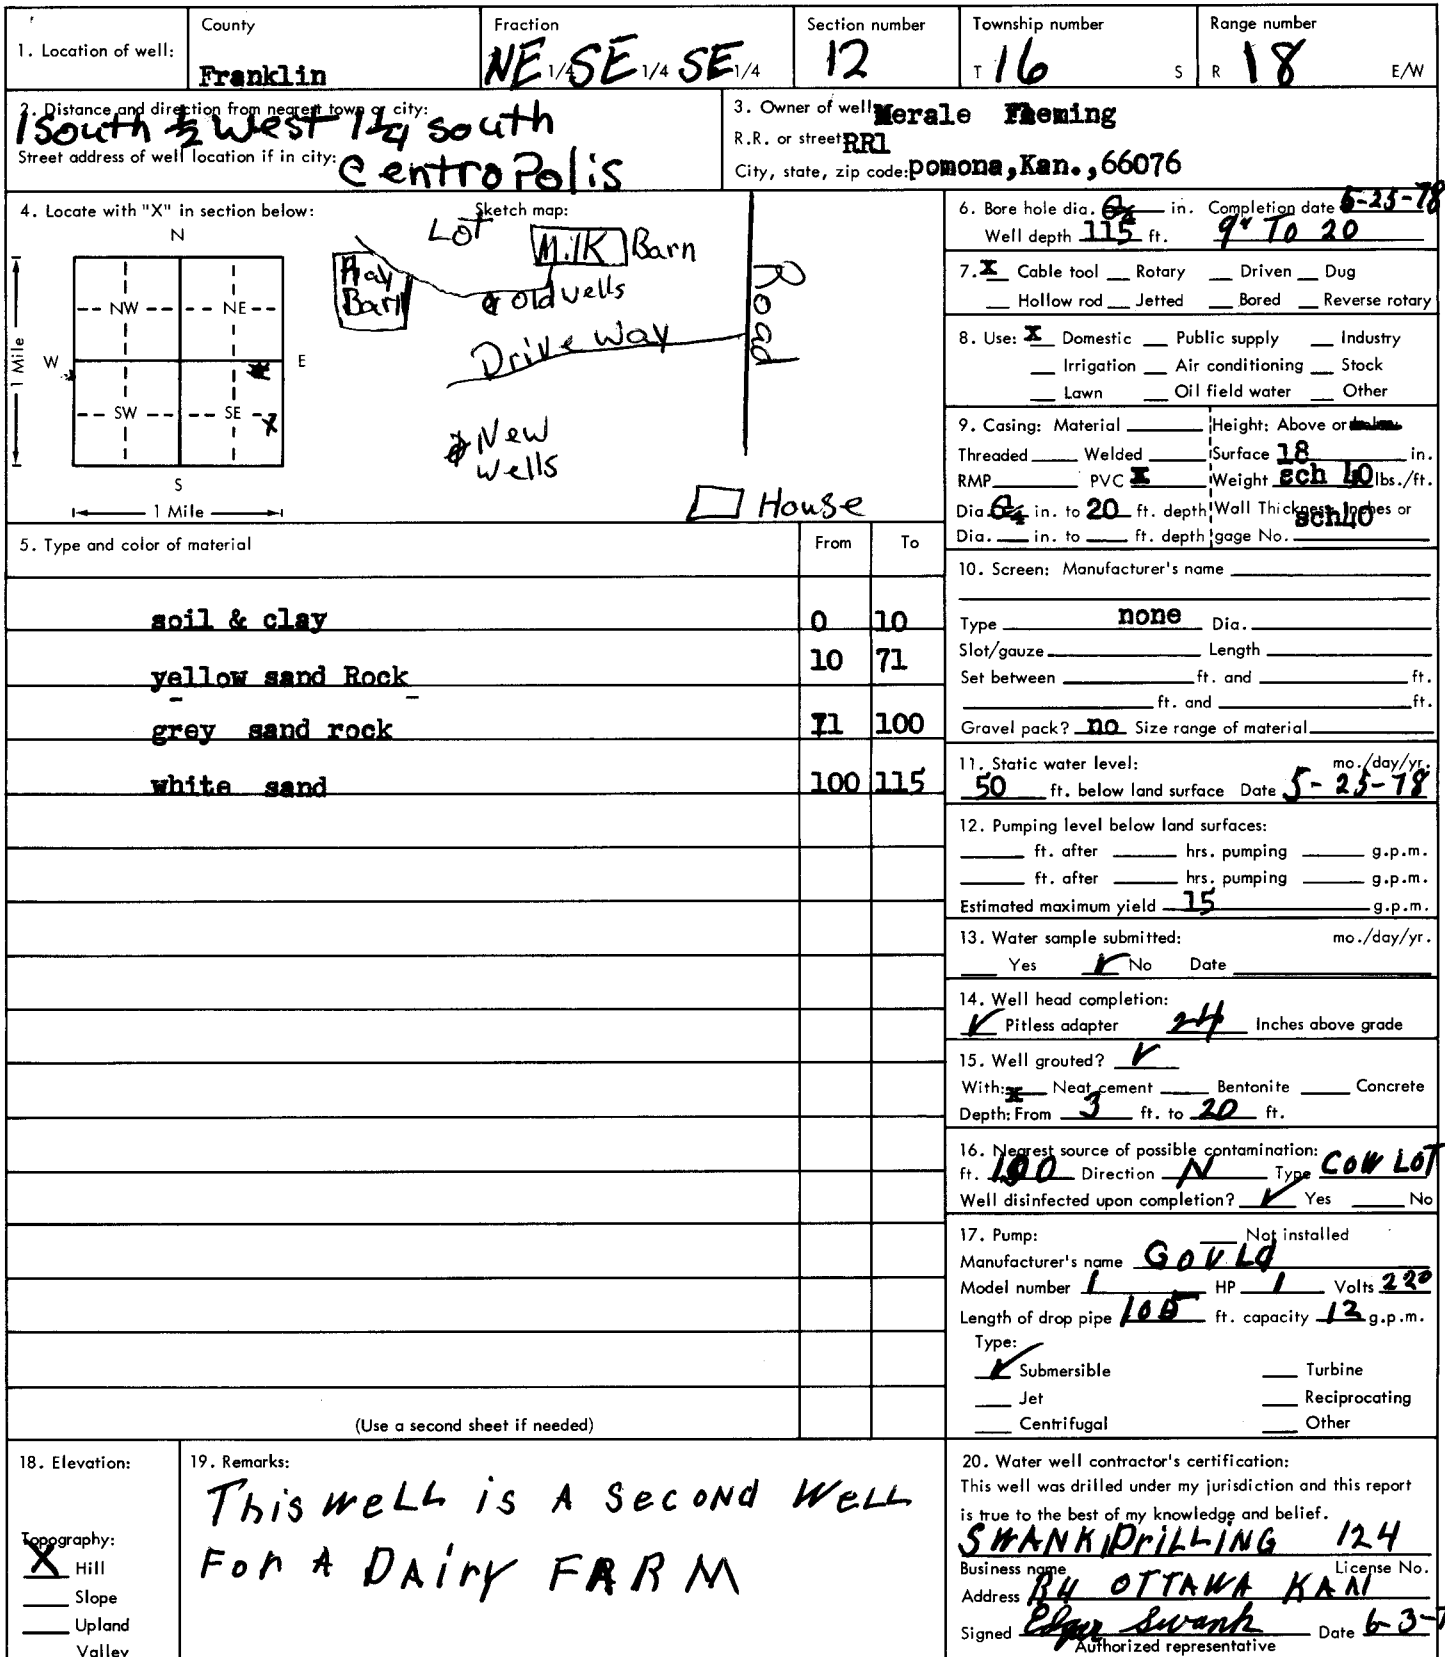 1. Location of well: County Franklin Fraction NE 1/4 SE 1/4 SE 1/4 Section number 12 Township number T 16 S Range number R 18 E/W
2. Distance and direction from nearest town or city:
1 South ½ West 1¼ south
Street address of well location if in city: CentroPolis
3. Owner of well: Merale Fleming
R.R. or street RR1
City, state, zip code: pomona,Kan.,66076
4. Locate with "X" in section below:
N
NW NE
W E
SW SE X
S
1 Mile
1 Mile
Sketch map:
Lot
Milk Barn
Hay Barn
old wells
Drive Way
Road
New wells
House
5. Type and color of material From To
soil & clay 0 10
yellow sand Rock 10 71
grey sand rock 71 100
white sand 100 115
(Use a second sheet if needed)
6. Bore hole dia. 6¼ in. Completion date 5-25-78
Well depth 115 ft. 9" To 20
7. X Cable tool Rotary Driven Dug
Hollow rod Jetted Bored Reverse rotary
8. Use: X Domestic Public supply Industry
Irrigation Air conditioning Stock
Lawn Oil field water Other
9. Casing: Material Height: Above or
Threaded Welded Surface 18 in.
RMP PVC X Weight sch 40 lbs./ft.
Dia. 6¼ in. to 20 ft. depth Wall Thickness: Inches or
Dia. in. to ft. depth gage No. sch40
10. Screen: Manufacturer's name
Type none Dia.
Slot/gauze Length
Set between ft. and ft.
ft. and ft.
Gravel pack? no Size range of material
11. Static water level: mo./day/yr.
50 ft. below land surface Date 5-25-78
12. Pumping level below land surfaces:
ft. after hrs. pumping g.p.m.
ft. after hrs. pumping g.p.m.
Estimated maximum yield 15 g.p.m.
13. Water sample submitted: mo./day/yr.
Yes ✓ No Date
14. Well head completion:
✓ Pitless adapter 24 Inches above grade
15. Well grouted? ✓
With: X Neat cement Bentonite Concrete
Depth: From 3 ft. to 20 ft.
16. Nearest source of possible contamination:
ft. 100 Direction N Type COW LOT
Well disinfected upon completion? ✓ Yes No
17. Pump: Not installed
Manufacturer's name GOULD
Model number 1 HP 1 Volts 220
Length of drop pipe 105 ft. capacity 12 g.p.m.
Type:
✓ Submersible Turbine
Jet Reciprocating
Centrifugal Other
18. Elevation:
Topography:
X Hill
Slope
Upland
Valley
19. Remarks:
This weLL is A Second WeLL
For A DAiry FARM
20. Water well contractor's certification:
This well was drilled under my jurisdiction and this report
is true to the best of my knowledge and belief.
SWANK DRiLLiNG 124
Business name License No.
Address R4 OTTAWA KAN
Signed Edgar Swank Date 6-3-7
Authorized representative